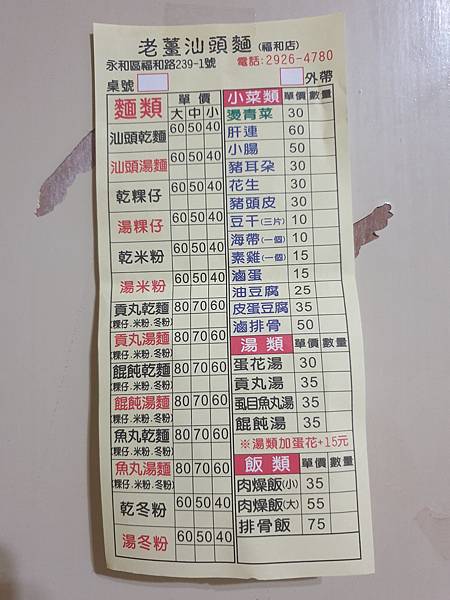 老薑汕頭麵(福和店)
永和區福和路239-1號 電話:2926-4780
桌號 外帶
麵類 單價 大 中 小
汕頭乾麵 60 50 40
汕頭湯麵 60 50 40
乾粿仔 60 50 40
湯粿仔 60 50 40
乾米粉 60 50 40
湯米粉 60 50 40
貢丸乾麵 80 70 60
(粿仔.米粉.冬粉)
貢丸湯麵 80 70 60
(粿仔.米粉.冬粉)
餛飩乾麵 80 70 60
(粿仔.米粉.冬粉)
餛飩湯麵 80 70 60
(粿仔.米粉.冬粉)
魚丸乾麵 80 70 60
(粿仔.米粉.冬粉)
魚丸湯麵 80 70 60
(粿仔.米粉.冬粉)
乾冬粉 60 50 40
湯冬粉 60 50 40
小菜類 單價 數量
燙青菜 30
肝連 60
小腸 50
豬耳朵 30
花生 30
豬頭皮 30
豆干(三片) 10
海帶(一個) 10
素雞(一個) 15
滷蛋 15
油豆腐 25
皮蛋豆腐 35
滷排骨 50
湯類 單價 數量
蛋花湯 30
貢丸湯 35
虱目魚丸湯 35
餛飩湯 35
※湯類加蛋花+15元
飯類 單價 數量
肉燥飯(小) 35
肉燥飯(大) 55
排骨飯 75